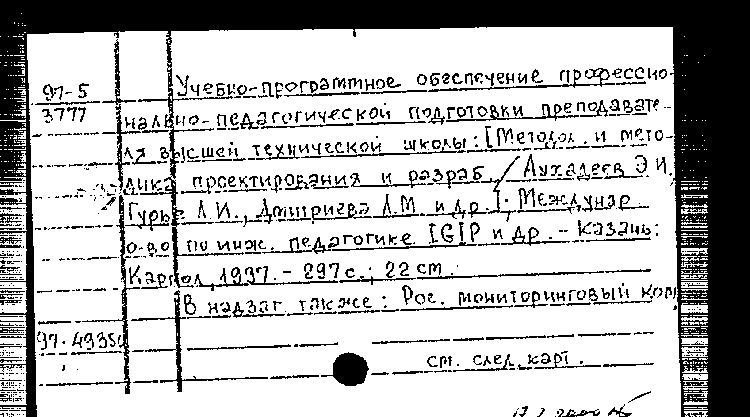 97-5 Учебно-программное обеспечение профессио-
3777 нально-педагогической подготовки преподавате-
ля высшей технической школы: [Методол. и мето-
дика проектирования и разраб. / Аухадеев Э.И.,
Гурье Л.И., Дмитриева Л.М. и др.]; Междунар.
о-во по инж. педагогике IGIP и др. - Казань:
Карпол, 1997. - 297 с.; 22 см.
В надзаг. также: Рос. мониторинговый ком
97-4935
см. след. карт.